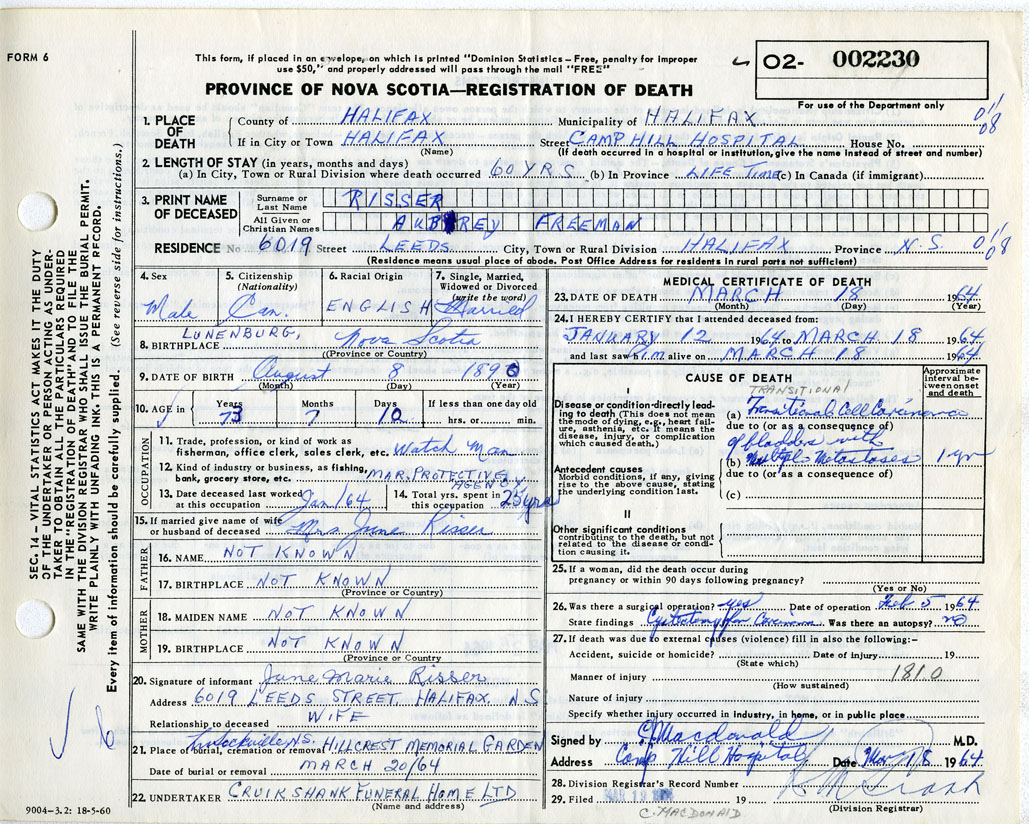 FORM 6
This form, if placed in an envelope, on which is printed "Dominion Statistics – Free, penalty for improper
use $50," and properly addressed will pass through the mail "FREE"
02- 002230
For use of the Department only
PROVINCE OF NOVA SCOTIA—REGISTRATION OF DEATH
1. PLACE OF DEATH
County of HALIFAX Municipality of HALIFAX
If in City or Town HALIFAX Street CAMP HILL HOSPITAL House No.
(Name) (If death occurred in hospital or institution, give the name instead of street and number)
2. LENGTH OF STAY (in years, months and days)
(a) In City, Town or Rural Division where death occurred 60 YRS (b) In Province LIFE TIME (c) In Canada (if immigrant)
3. PRINT NAME OF DECEASED
Surname or Last Name RISSER
All Given or Christian Names AUBREY FREEMAN
RESIDENCE No 6019 Street LEEDS City, Town or Rural Division HALIFAX Province N.S.
(Residence means usual place of abode. Post Office Address for residents in rural parts not sufficient)
4. Sex Male
5. Citizenship (Nationality) Can.
6. Racial Origin ENGLISH
7. Single, Married, Widowed or Divorced (write the word) Married
8. BIRTHPLACE LUNENBURG, Nova Scotia
(Province or Country)
9. DATE OF BIRTH August 8 1890
(Month) (Day) (Year)
10. AGE in Years 73 Months 7 Days 10 If less than one day old hrs. or min.
OCCUPATION
11. Trade, profession, or kind of work as fisherman, office clerk, sales clerk, etc. Watch Man
12. Kind of industry or business, as fishing, bank, grocery store, etc. MAR. PROTECTIVE AGENCY
13. Date deceased last worked at this occupation Jan/64
14. Total yrs. spent in this occupation 25 yrs
15. If married give name of wife or husband of deceased Mrs June Risser
FATHER
16. NAME NOT KNOWN
17. BIRTHPLACE NOT KNOWN
(Province or Country)
MOTHER
18. MAIDEN NAME NOT KNOWN
19. BIRTHPLACE NOT KNOWN
(Province or Country)
20. Signature of informant June Marie Risser
Address 6019 LEEDS STREET, HALIFAX NS
Relationship to deceased WIFE
21. Place of burial, cremation or removal Sackville N.S. HILLCREST MEMORIAL GARDEN
Date of burial or removal MARCH 20/64
22. UNDERTAKER CRUIKSHANK FUNERAL HOME LTD
(Name and address)
9004-3.2: 18-5-60
MEDICAL CERTIFICATE OF DEATH
23. DATE OF DEATH MARCH 18 1964
(Month) (Day) (Year)
24. I HEREBY CERTIFY that I attended deceased from:
JANUARY 12 1964 to MARCH 18 1964
and last saw him alive on MARCH 18 1964
CAUSE OF DEATH
Approximate interval between onset and death
I
Disease or condition directly leading to death (This does not mean the mode of dying, e.g., heart failure, asthenia, etc. It means the disease, injury, or complication which caused death.)
TRANSITIONAL
(a) Transitional Cell Carcinoma
due to (or as a consequence of)
of bladder with
(b) Multiple Metastases 1 yr
due to (or as a consequence of)
(c)
Antecedent causes
Morbid conditions, if any, giving rise to the above cause, stating the underlying condition last.
II
Other significant conditions contributing to the death, but not related to the disease or condition causing it.
25. If a woman, did the death occur during
pregnancy or within 90 days following pregnancy?
(Yes or No)
26. Was there a surgical operation? yes Date of operation Feb 5 1964
State findings Cystotomy for Carcinoma Was there an autopsy? no
27. If death was due to external causes (violence) fill in also the following:–
Accident, suicide or homicide? Date of injury 19
(State which)
Manner of injury 1810
(How sustained)
Nature of injury
Specify whether injury occurred in industry, in home, or in public place
Signed by C Macdonald M.D.
Address Camp Hill Hospital Date Mar 18 1964
28. Division Registrar's Record Number
29. Filed MAR 19 19
(Division Registrar)
C. MACDONALD
SEC. 14 – VITAL STATISTICS ACT MAKES IT THE DUTY
OF THE UNDERTAKER OR PERSON ACTING AS UNDER-
TAKER TO OBTAIN ALL THE PARTICULARS REQUIRED
IN THE "REGISTRATION OF DEATH" AND TO FILE THE
SAME WITH THE DIVISION REGISTRAR WHO SHALL ISSUE THE BURIAL PERMIT.
WRITE PLAINLY WITH UNFADING INK. THIS IS A PERMANENT RECORD.
Every item of information should be carefully supplied. (See reverse side for instructions.)